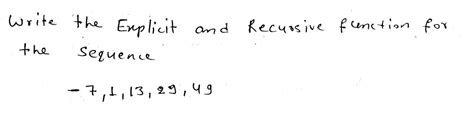 Write the Explicit and Recursive function for
the sequence
- 7, 1, 13, 29, 49